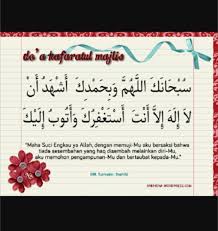 do'a kafaratul majlis
سُبْحَانَكَ اللَّهُمَّ وَبِحَمْدِكَ أَشْهَدُ أَنْ
لَا إِلَهَ إِلَّا أَنْتَ أَسْتَغْفِرُكَ وَأَتُوبُ إِلَيْكَ
"Maha Suci Engkau ya Allah, dengan memuji-Mu aku bersaksi bahwa
tiada sesembahan yang haq disembah melainkan diri-Mu,
aku memohon pengampunan-Mu dan bertaubat kepada-Mu."
(HR. Turmudzi, Shahih)